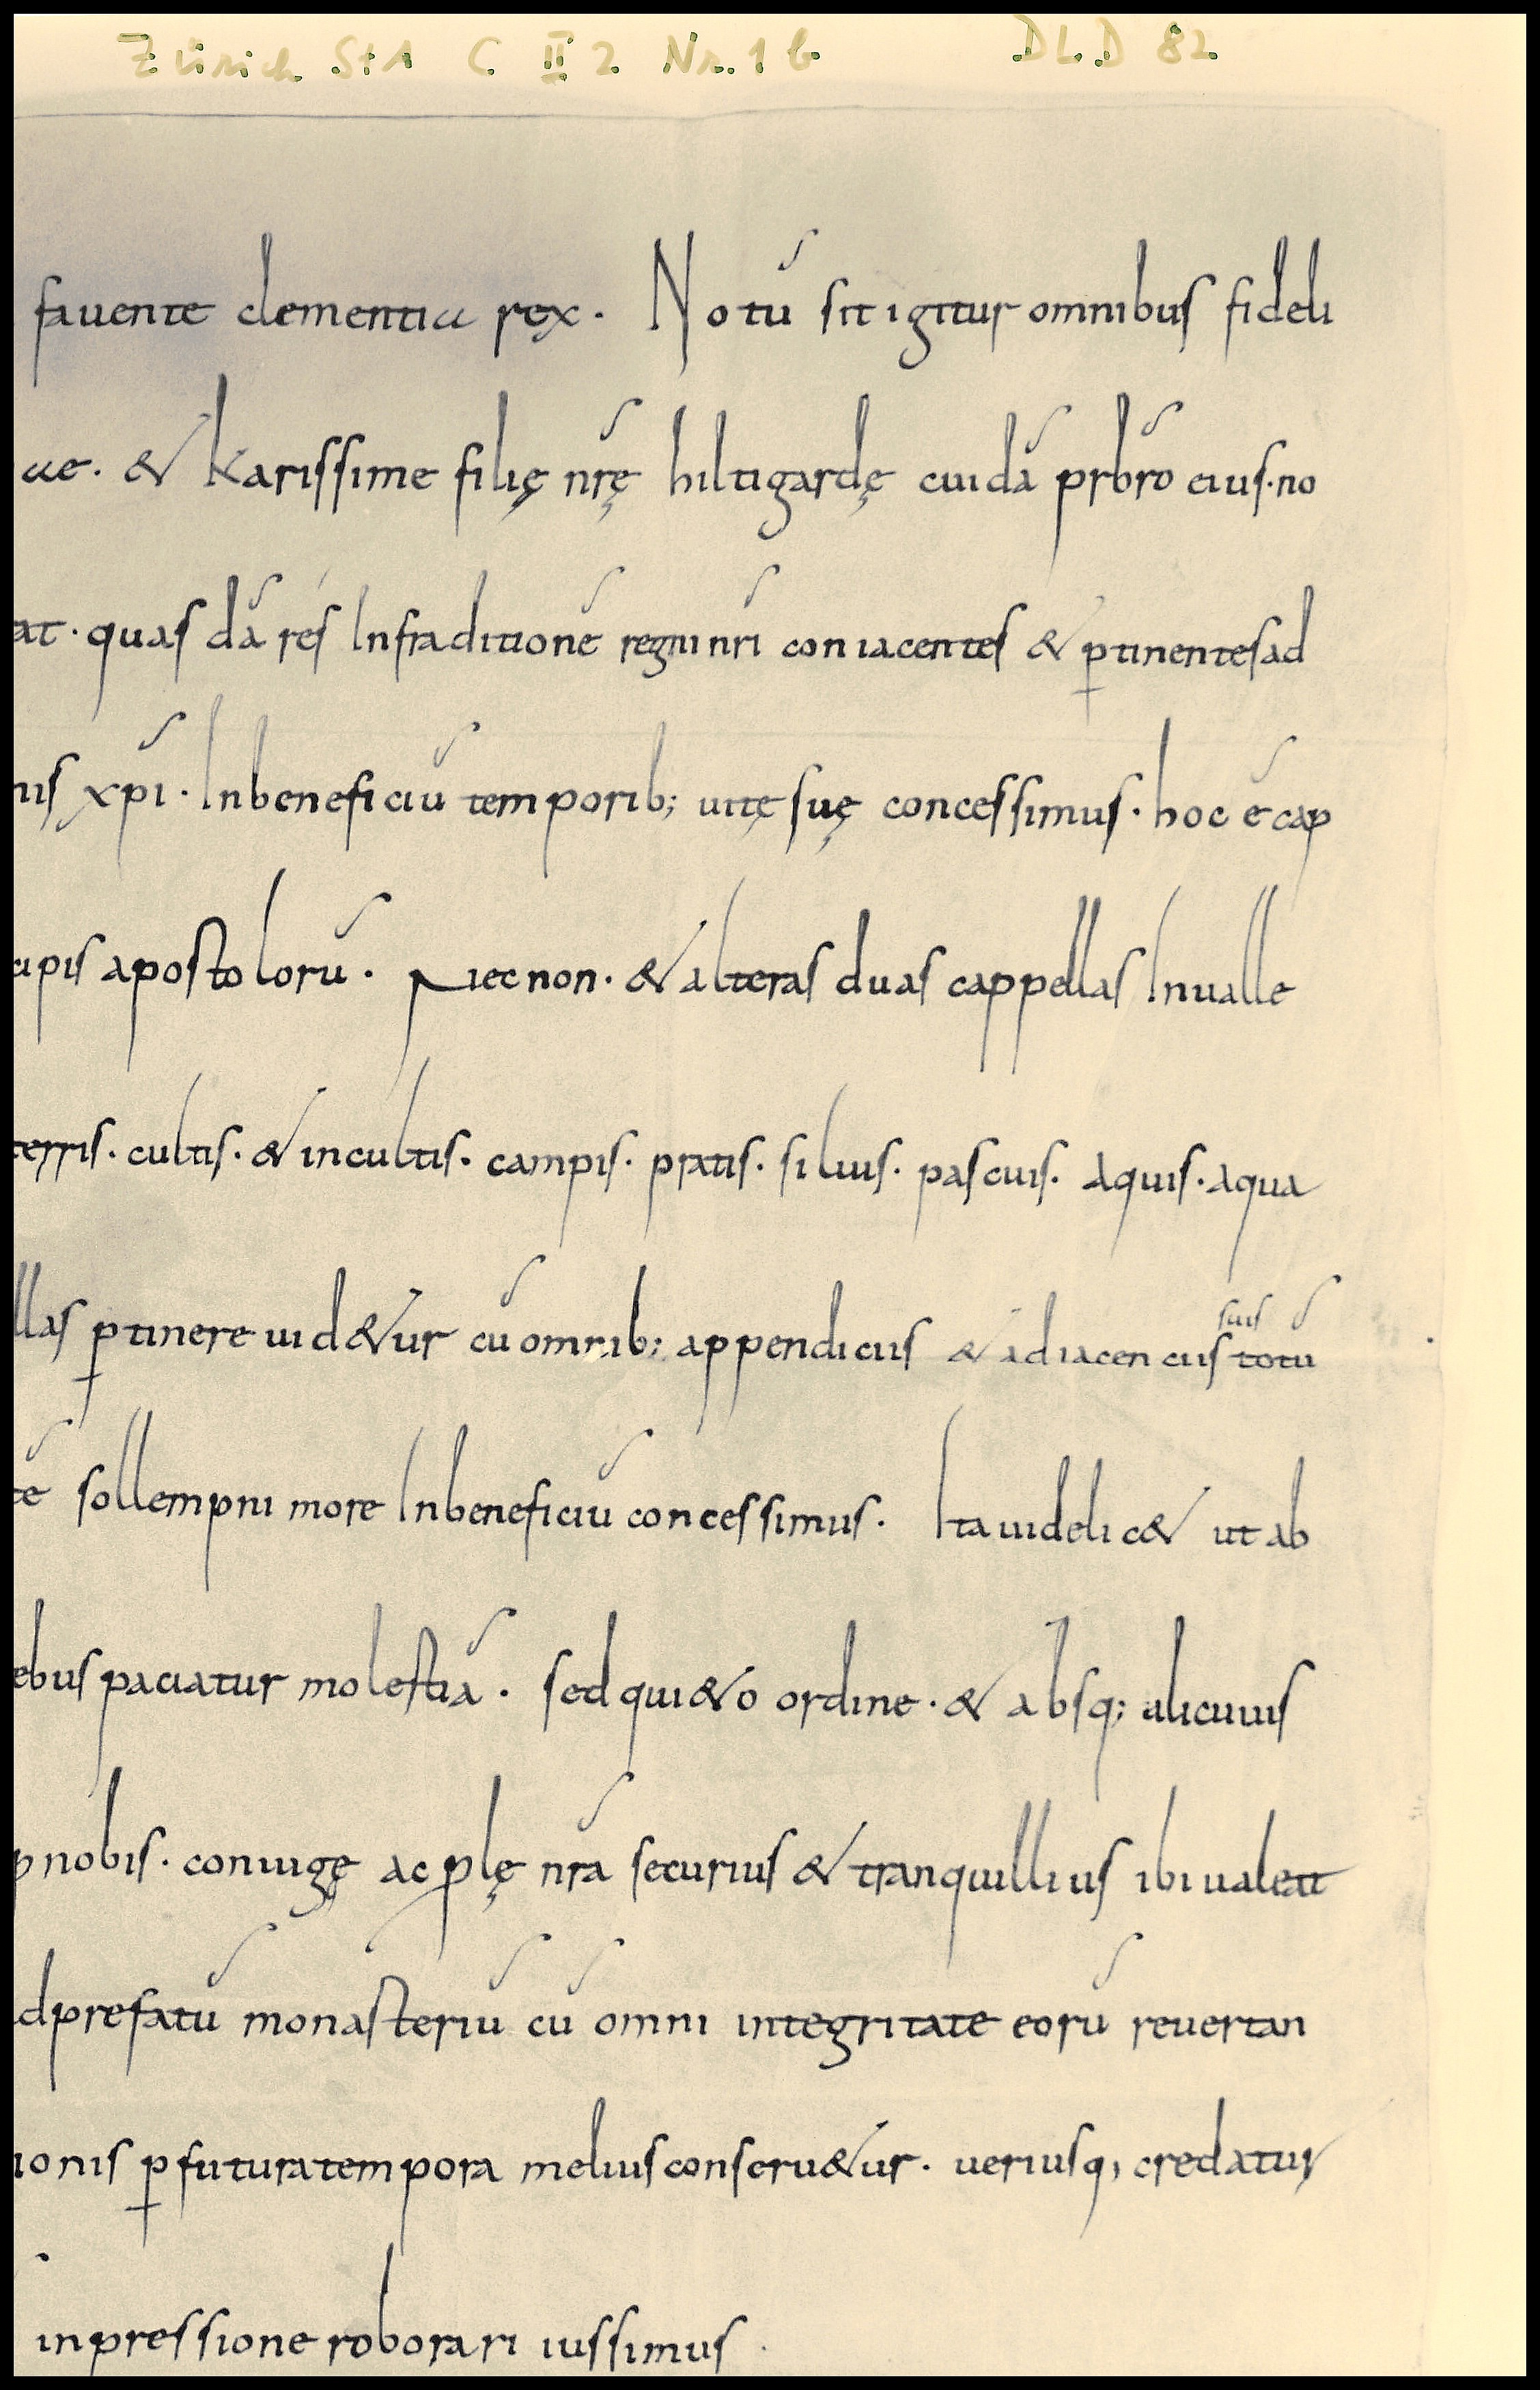 Zürich StA C II 2 Nr. 1 b DLD 82
fauente clementia rex. Notū sit igitur omnibus fideli
ae. & karissime filię nr̄ę hiltigardę cuidā prb̄ro eius. no
at. quasdā res Infra ditionē regni nr̄i coniacentes & ꝑtinentes ad
nis xp̄i. In beneficiū temporib; uitę suę concessimus. hoc ē cap
cipis apostolorū. Necnon. & alteras duas cappellas In ualle
terris. cultis. & incultis. campis. pratis. siluis. pascuis. Aquis. aqua
llas ꝑtinere uid&ur cū omnib; appendiciis & adiacenciis suis totū
tē sollempni more In beneficiū concessimus. Ita uidelic& ut ab
ebus paciatur molestiā. sed qui&o ordine. & absq; alicuius
p nobis. coniugę ac ꝓlę nr̄a securius & tranquillius ibi ualeat
d prefatū monasteriū cū omni integritate eorū reuertan
ionis ꝑ futura tempora melius conseru&ur. ueriusq; credatur
inpressione roborari iussimus.